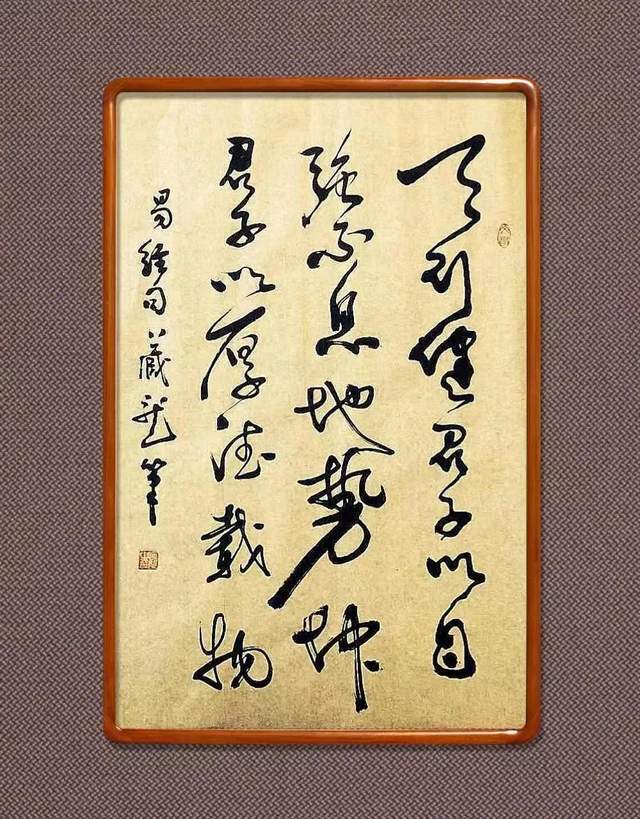 天行健君子以自
强不息地势坤
君子以厚德载物
易经句藏龙笔